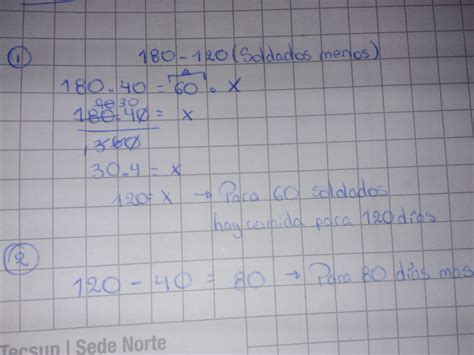 ① 180-120 (Soldados menos)
180.40 = 60 . x
90 30
180.40 = x
360
30.4 = x
120 = x → Para 60 soldados
hay comida para 120 dias
② 120 - 40 = 80 → Para 80 dias mas
Tecsup | Sede Norte